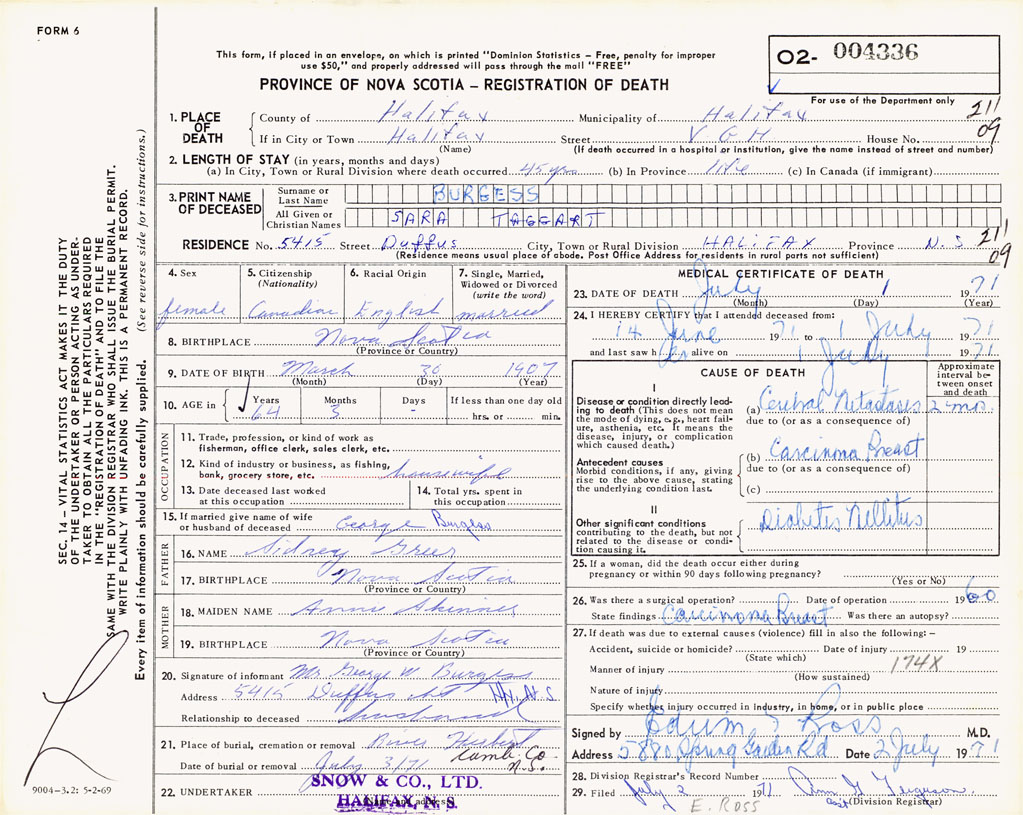 FORM 6
This form, if placed in an envelope, on which is printed "Dominion Statistics – Free, penalty for improper
use $50," and properly addressed will pass through the mail "FREE"
PROVINCE OF NOVA SCOTIA – REGISTRATION OF DEATH
02- 004336
For use of the Department only
1. PLACE OF DEATH
County of Halifax Municipality of Halifax 211
If in City or Town Halifax Street V G H House No. 09
(Name) (If death occurred in a hospital or institution, give the name instead of street and number)
2. LENGTH OF STAY (in years, months and days)
(a) In City, Town or Rural Division where death occurred 45 yrs (b) In Province life (c) In Canada (if immigrant)
3. PRINT NAME OF DECEASED
Surname or Last Name BURGESS
All Given or Christian Names SARA TAGGART
RESIDENCE No. 5415 Street Duffus City, Town or Rural Division HALIFAX Province N.S 211
(Residence means usual place of abode. Post Office Address for residents in rural parts not sufficient) 09
4. Sex
female
5. Citizenship (Nationality)
Canadian
6. Racial Origin
English
7. Single, Married, Widowed or Divorced (write the word)
married
8. BIRTHPLACE Nova Scotia
(Province or Country)
9. DATE OF BIRTH March 30 1907
(Month) (Day) (Year)
10. AGE in Years Months Days If less than one day old
64 3 - hrs. or min.
OCCUPATION
11. Trade, profession, or kind of work as
fisherman, office clerk, sales clerk, etc.
12. Kind of industry or business, as fishing,
bank, grocery store, etc. housewife
13. Date deceased last worked
at this occupation
14. Total yrs. spent in
this occupation
15. If married give name of wife
or husband of deceased George Burgess
FATHER
16. NAME Sidney
17. BIRTHPLACE Nova Scotia
(Province or Country)
MOTHER
18. MAIDEN NAME Annie Skinner
19. BIRTHPLACE Nova Scotia
(Province or Country)
20. Signature of informant Mr George W Burgess
Address 5415 Duffus St Hx. N.S
Relationship to deceased husband
21. Place of burial, cremation or removal River Hebert
Cumb. Co
Date of burial or removal July 3/71 N.S.
22. UNDERTAKER SNOW & CO., LTD.
HALIFAX, N. S.
(Name and address)
MEDICAL CERTIFICATE OF DEATH
23. DATE OF DEATH July 1 1971
(Month) (Day) (Year)
24. I HEREBY CERTIFY that I attended deceased from:
14 June 1971 to 1 July 1971
and last saw her alive on 1 July 1971
CAUSE OF DEATH
Approximate interval between onset and death
I
Disease or condition directly leading to death (This does not mean the mode of dying, e.g., heart failure, asthenia, etc. It means the disease, injury, or complication which caused death.)
(a) Cerebral Metastases 2 mos.
due to (or as a consequence of)
Antecedent causes
Morbid conditions, if any, giving rise to the above cause, stating the underlying condition last.
(b) Carcinoma Breast
due to (or as a consequence of)
(c)
II
Other significant conditions
contributing to the death, but not related to the disease or condition causing it.
Diabetes Mellitus
25. If a woman, did the death occur either during
pregnancy or within 90 days following pregnancy?
(Yes or No)
26. Was there a surgical operation? Date of operation 1960
State findings Carcinoma Breast Was there an autopsy?
27. If death was due to external causes (violence) fill in also the following: –
Accident, suicide or homicide? Date of injury 19
(State which)
Manner of injury 174X
(How sustained)
Nature of injury
Specify whether injury occurred in industry, in home, or in public place
Signed by Edwin Ross M.D.
Address 5880 Spring Garden Rd Date 2 July 1971
28. Division Registrar's Record Number
29. Filed July 2 1971 Ann Ferguson
(Division Registrar)
E. ROSS
SEC. 14 – VITAL STATISTICS ACT MAKES IT THE DUTY
OF THE UNDERTAKER OR PERSON ACTING AS UNDER-
TAKER TO OBTAIN ALL THE PARTICULARS REQUIRED
IN THE "REGISTRATION OF DEATH" AND TO FILE THE
SAME WITH THE DIVISION REGISTRAR WHO SHALL ISSUE THE BURIAL PERMIT.
WRITE PLAINLY WITH UNFADING INK. THIS IS A PERMANENT RECORD.
Every item of information should be carefully supplied. (See reverse side for instructions.)
9004-3.2: 5-2-69